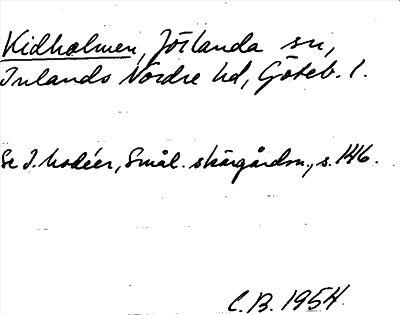 Kidholmen, Jörlanda sn,
Inlands Nordre hd, Göteb. l.
Se I. Modéer, Smål. skärgårdsn., s. 146.
C.B. 1954.